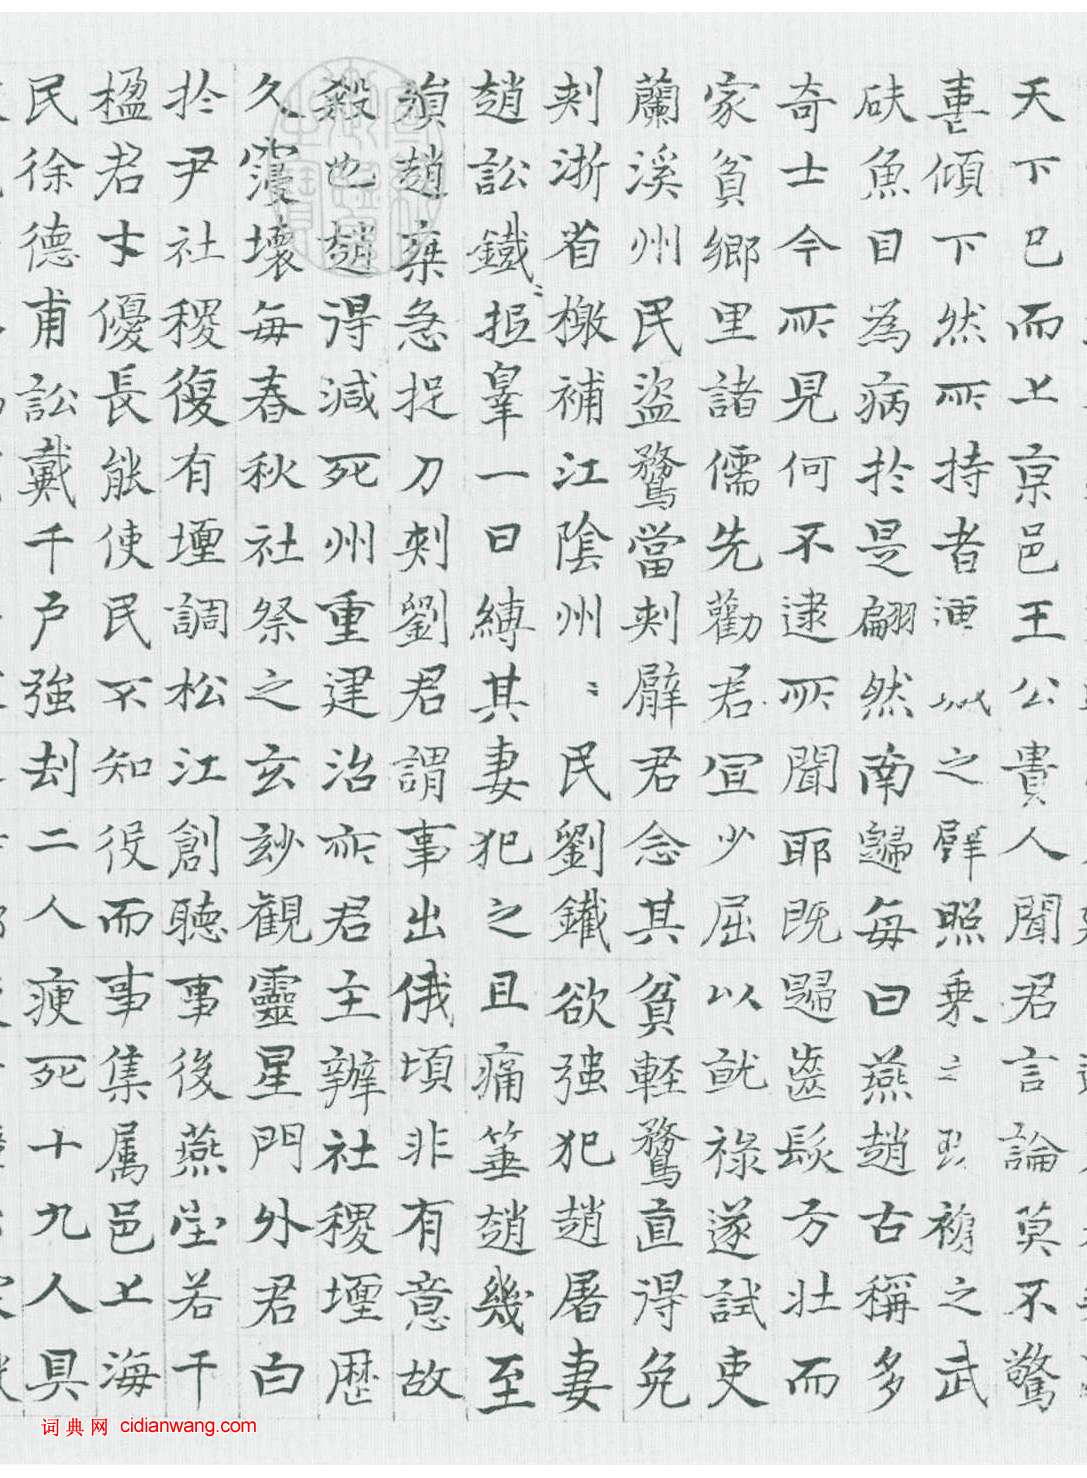 天下已而上京邑王公貴人聞君言論莫不驚
傾下然所持者連城之璧照乘〻之武
砆魚目為病於是翩然南歸每曰燕趙古稱多
奇士今所見何不逮所聞耶既歸齒髮方壯而
家貧鄉里諸儒先勸君宜少屈以就祿遂試吏
蘭溪州民盜鶩當刺臂君念其貧輕鶩直得免
刺浙省檄補江陰州〻民劉鐵欲強犯趙屠妻
趙訟鐵〻抵辠一日縛其妻犯之且痛箠趙幾至
殞趙棄急捉刀刺劉君謂事出俄頃非有意故
殺也趙得減死州重建治所君主辦社稷壇歷
久寖壞每春秋社祭之玄妙觀靈星門外君白
於尹社稷復有壇調松江創聽事後燕堂若干
楹君才優長能使民不知役而事集属邑上海
民徐德甫訟戴千戶強刦二人瘐死十九人具
词典网 cidianwang.com